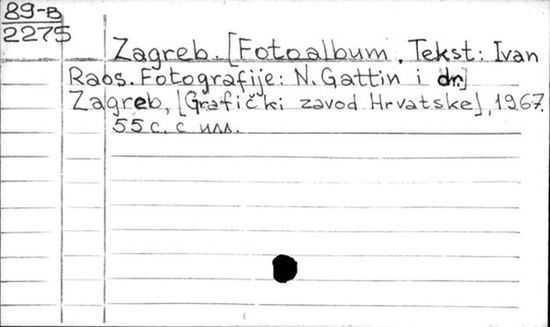 89-в
2275
Zagreb. [Fotoalbum. Tekst: Ivan
Raos. Fotografije: N. Gattin i dr.]
Zagreb, [Grafički zavod Hrvatske], 1967.
55 c. с илл.